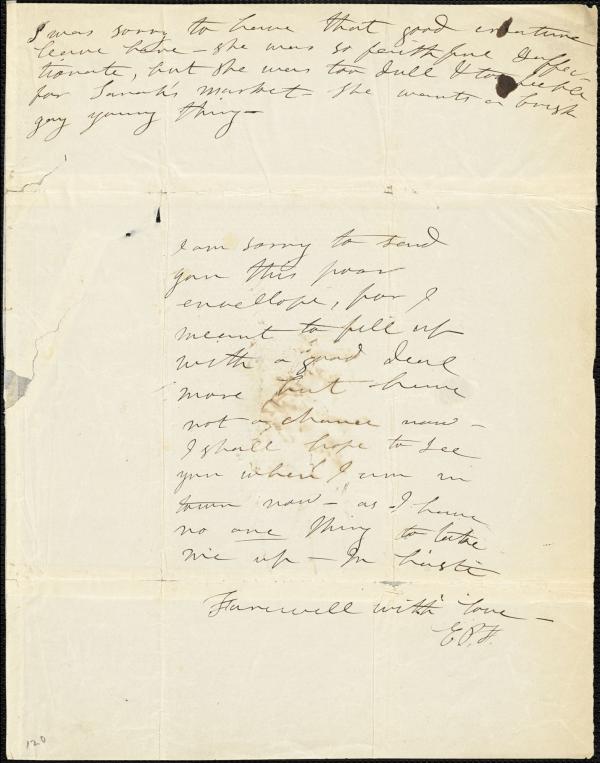 I was sorry to have that good creature
leave here – she was so faithful & affec-
tionate, but she was too dull & too feeble
for Sarah's market – she wants a brisk
gay young thing –
I am sorry to send
you this poor
envellope, for I
meant to fill up
with a good deal
more but have
not a chance now –
I shall hope to see
you when I am in
town now – as I have
no one thing to take
me up – In haste
Farewell with love –
E.P.F.
120